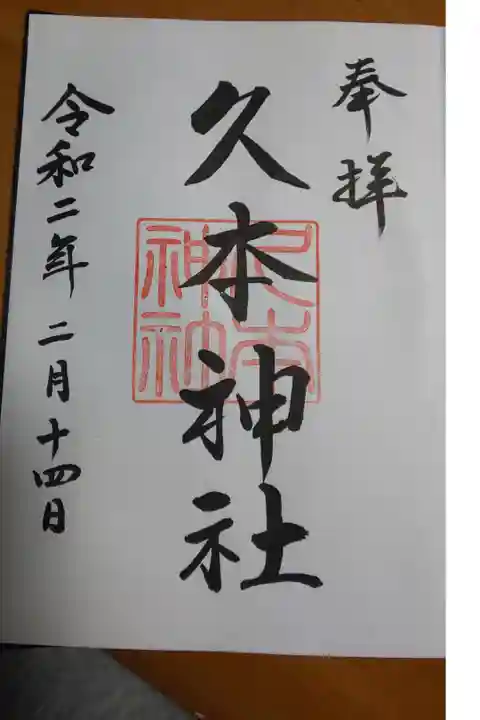 奉拝
久本神社
久本神社
令和二年二月十四日